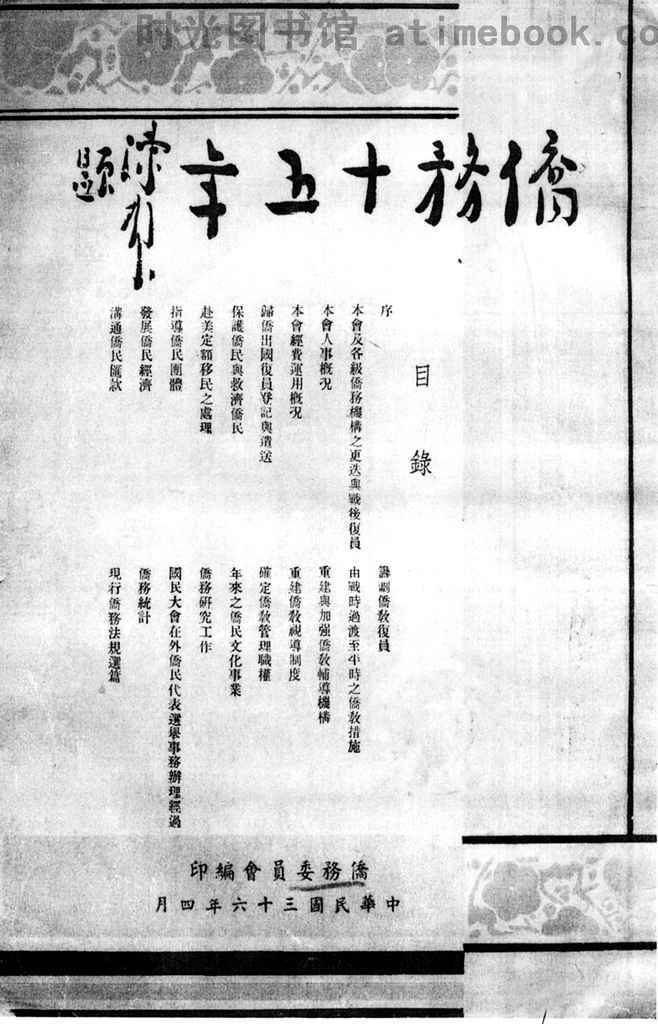 时光图书馆 atimebook.co
僑務十五年
陳樹
題
目錄
序
本會及各級僑務機構之更迭與戰後復員
本會人事概況
本會經費運用概況
歸僑出國復員登記與遣送
保護僑民與救濟僑民
赴美定額移民之處理
指導僑民團體
發展僑民經濟
溝通僑民匯款
籌劃僑教復員
由戰時過渡至平時之僑教措施
重建與加强僑教輔導機構
重建僑教視導制度
確定僑教管理職權
年來之僑民文化事業
僑務研究工作
國民大會在外僑民代表選舉事務辦理經過
僑務統計
現行僑務法規選篇
僑務委員會編印
中華民國三十六年四月